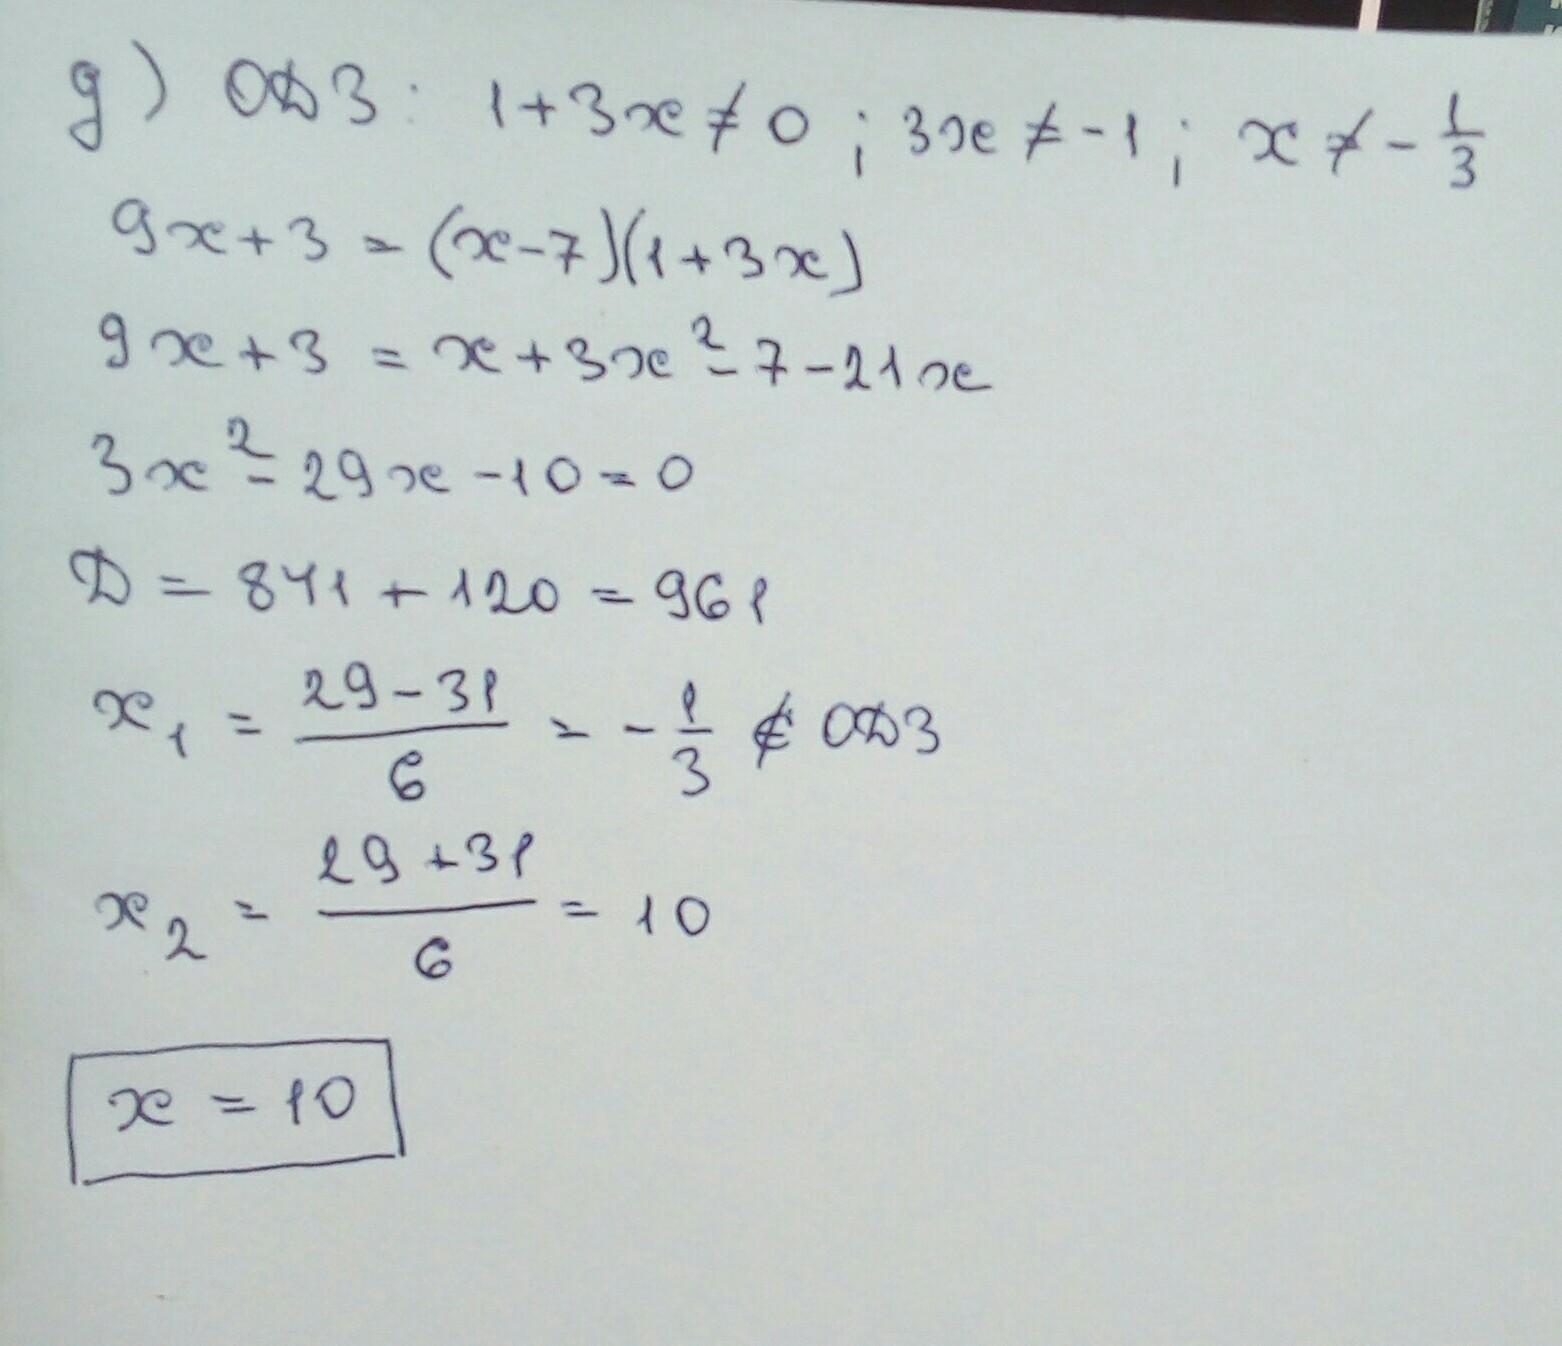 д) ОДЗ: 1+3x≠0; 3x≠-1; x≠-1/3
9x+3=(x-7)(1+3x)
9x+3=x+3x²-7-21x
3x²-29x-10=0
D=841+120=961
x₁=(29-31)/6=-1/3∉ОДЗ
x₂=(29+31)/6=10
x=10